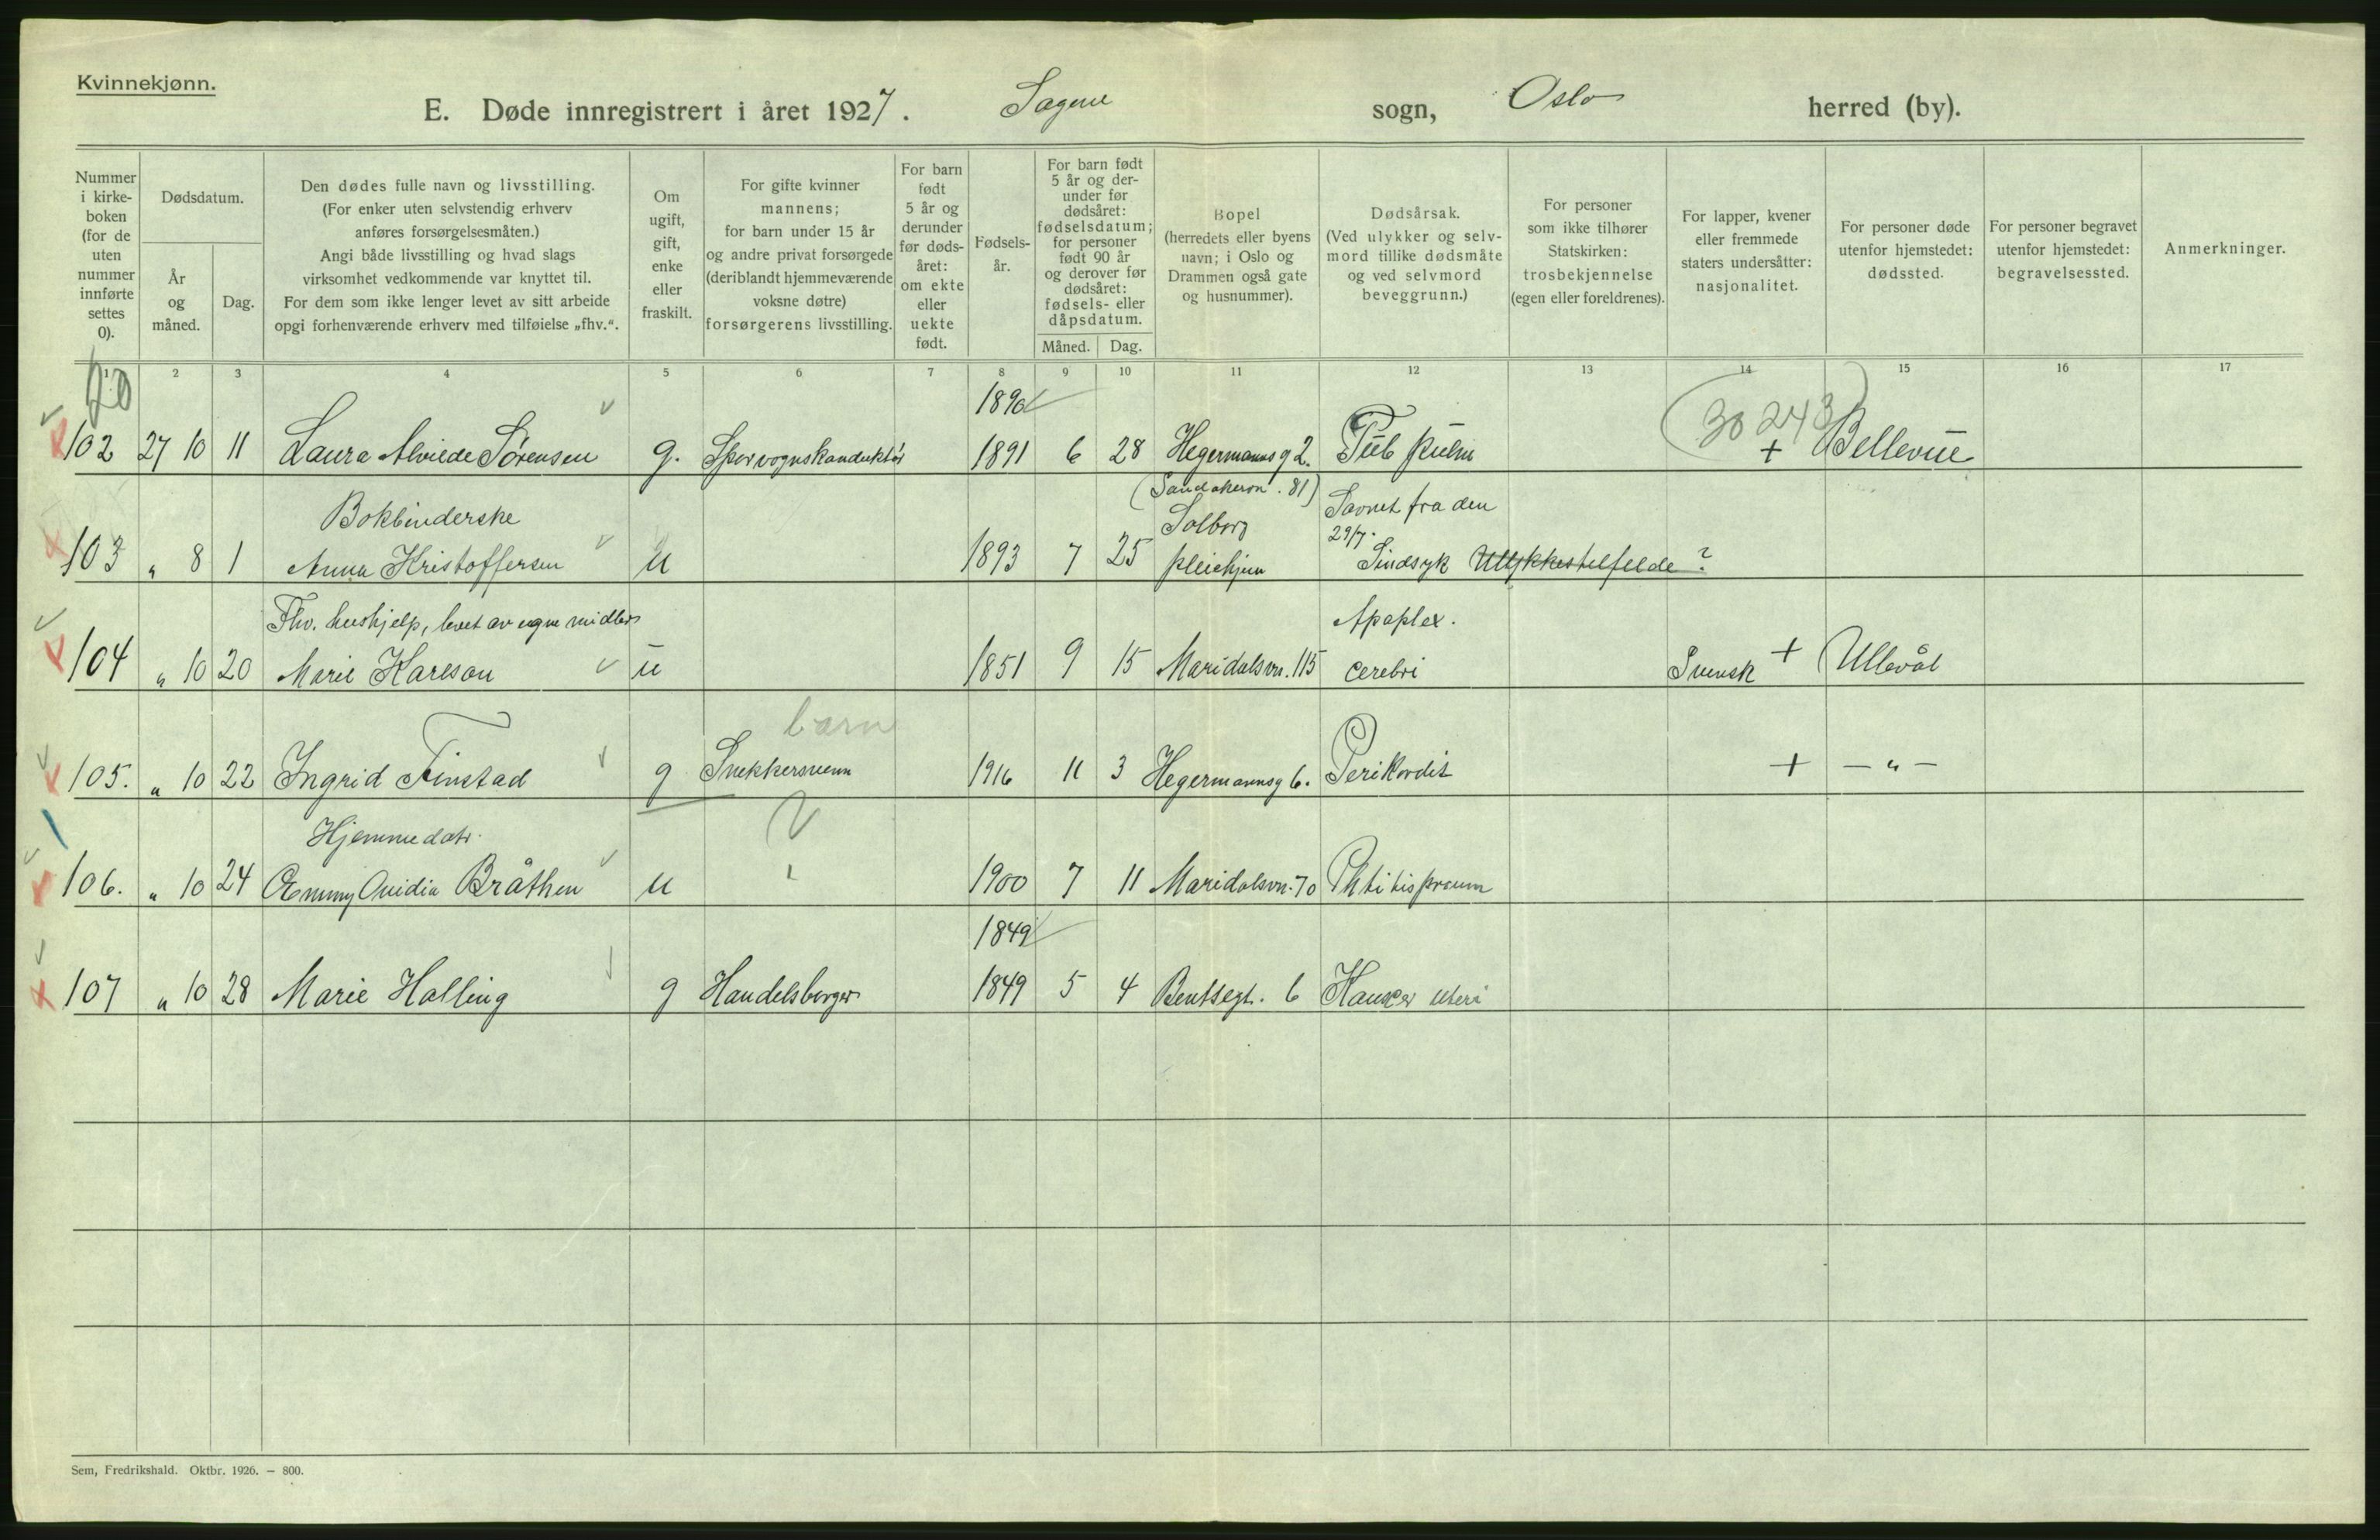 Kvinnekjønn.
E. Døde innregistrert i året 1927. Sagene sogn, Oslo herred (by).
Nummer i kirkeboken (for de uten nummer innførte settes 0).
Dødsdatum.
År og måned.
Dag.
Den dødes fulle navn og livsstilling.
(For enker uten selvstendig erhverv
anføres forsørgelsesmåten.)
Angi både livsstilling og hvad slags
virksomhet vedkommende var knyttet til.
For dem som ikke lenger levet av sitt arbeide
opgi forhenværende erhverv med tilføielse „fhv.“.
Om
ugift,
gift,
enke
eller
fraskilt.
For gifte kvinner
mannens;
for barn under 15 år
og andre privat forsørgede
(deriblandt hjemmeværende
voksne døtre)
forsørgerens livsstilling.
For barn
født
5 år og
derunder
før døds-
året:
om ekte
eller
uekte
født.
Fødsels-
år.
For barn født
5 år og der-
under før
dødsåret:
fødselsdatum;
for personer
født 90 år
og derover før
dødsåret:
fødsels- eller
dåpsdatum.
Måned. Dag.
Bopel
(herredets eller byens
navn; i Oslo og
Drammen også gate
og husnummer).
Dødsårsak.
(Ved ulykker og selv-
mord tillike dødsmåte
og ved selvmord
beveggrunn.)
For personer
som ikke tilhører
Statskirken:
trosbekjennelse
(egen eller foreldrenes).
For lapper, kvener
eller fremmede
staters undersåtter:
nasjonalitet.
For personer døde
utenfor hjemstedet:
dødssted.
For personer begravet
utenfor hjemstedet:
begravelsessted.
Anmerkninger.
1 2 3 4 5 6 7 8 9 10 11 12 13 14 15 16 17
1890
30243
102 27 10 11 Laura Alvilde Sørensen g. Sporvognskonduktør 1891 6 28 Hegermanns g 2. Tub pulm + Bellevue
(Sandakervn. 81)
Bokbinderske Solberg Savnet fra den
29/7.
103 " 8 1 Anna Kristoffersen u 1893 7 25 pleiehjem Sindsyk Ulykkestilfelde?
Fhv. hushjelp, levet av egne midler Apoplex.
104 " 10 20 Marie Karlson u 1851 9 15 Maridalsvn. 115 cerebri Svensk + Ullevål
barn
105. " 10 22 Ingrid Finstad g Snekkersvenn 1916 11 3 Hegermannsg 6. Perikardit + — " —
Hjemmedatr.
106. " 10 24 Emmy Ovidia Bråthen u 1900 7 11 Maridalsvn. 70 Phtitis
1849
107 " 10 28 Marie Halling g Handelsborger 1849 5 4 Bentsegt. 6 Kancer uteri
Sem, Fredrikshald. Oktbr. 1926. — 800.